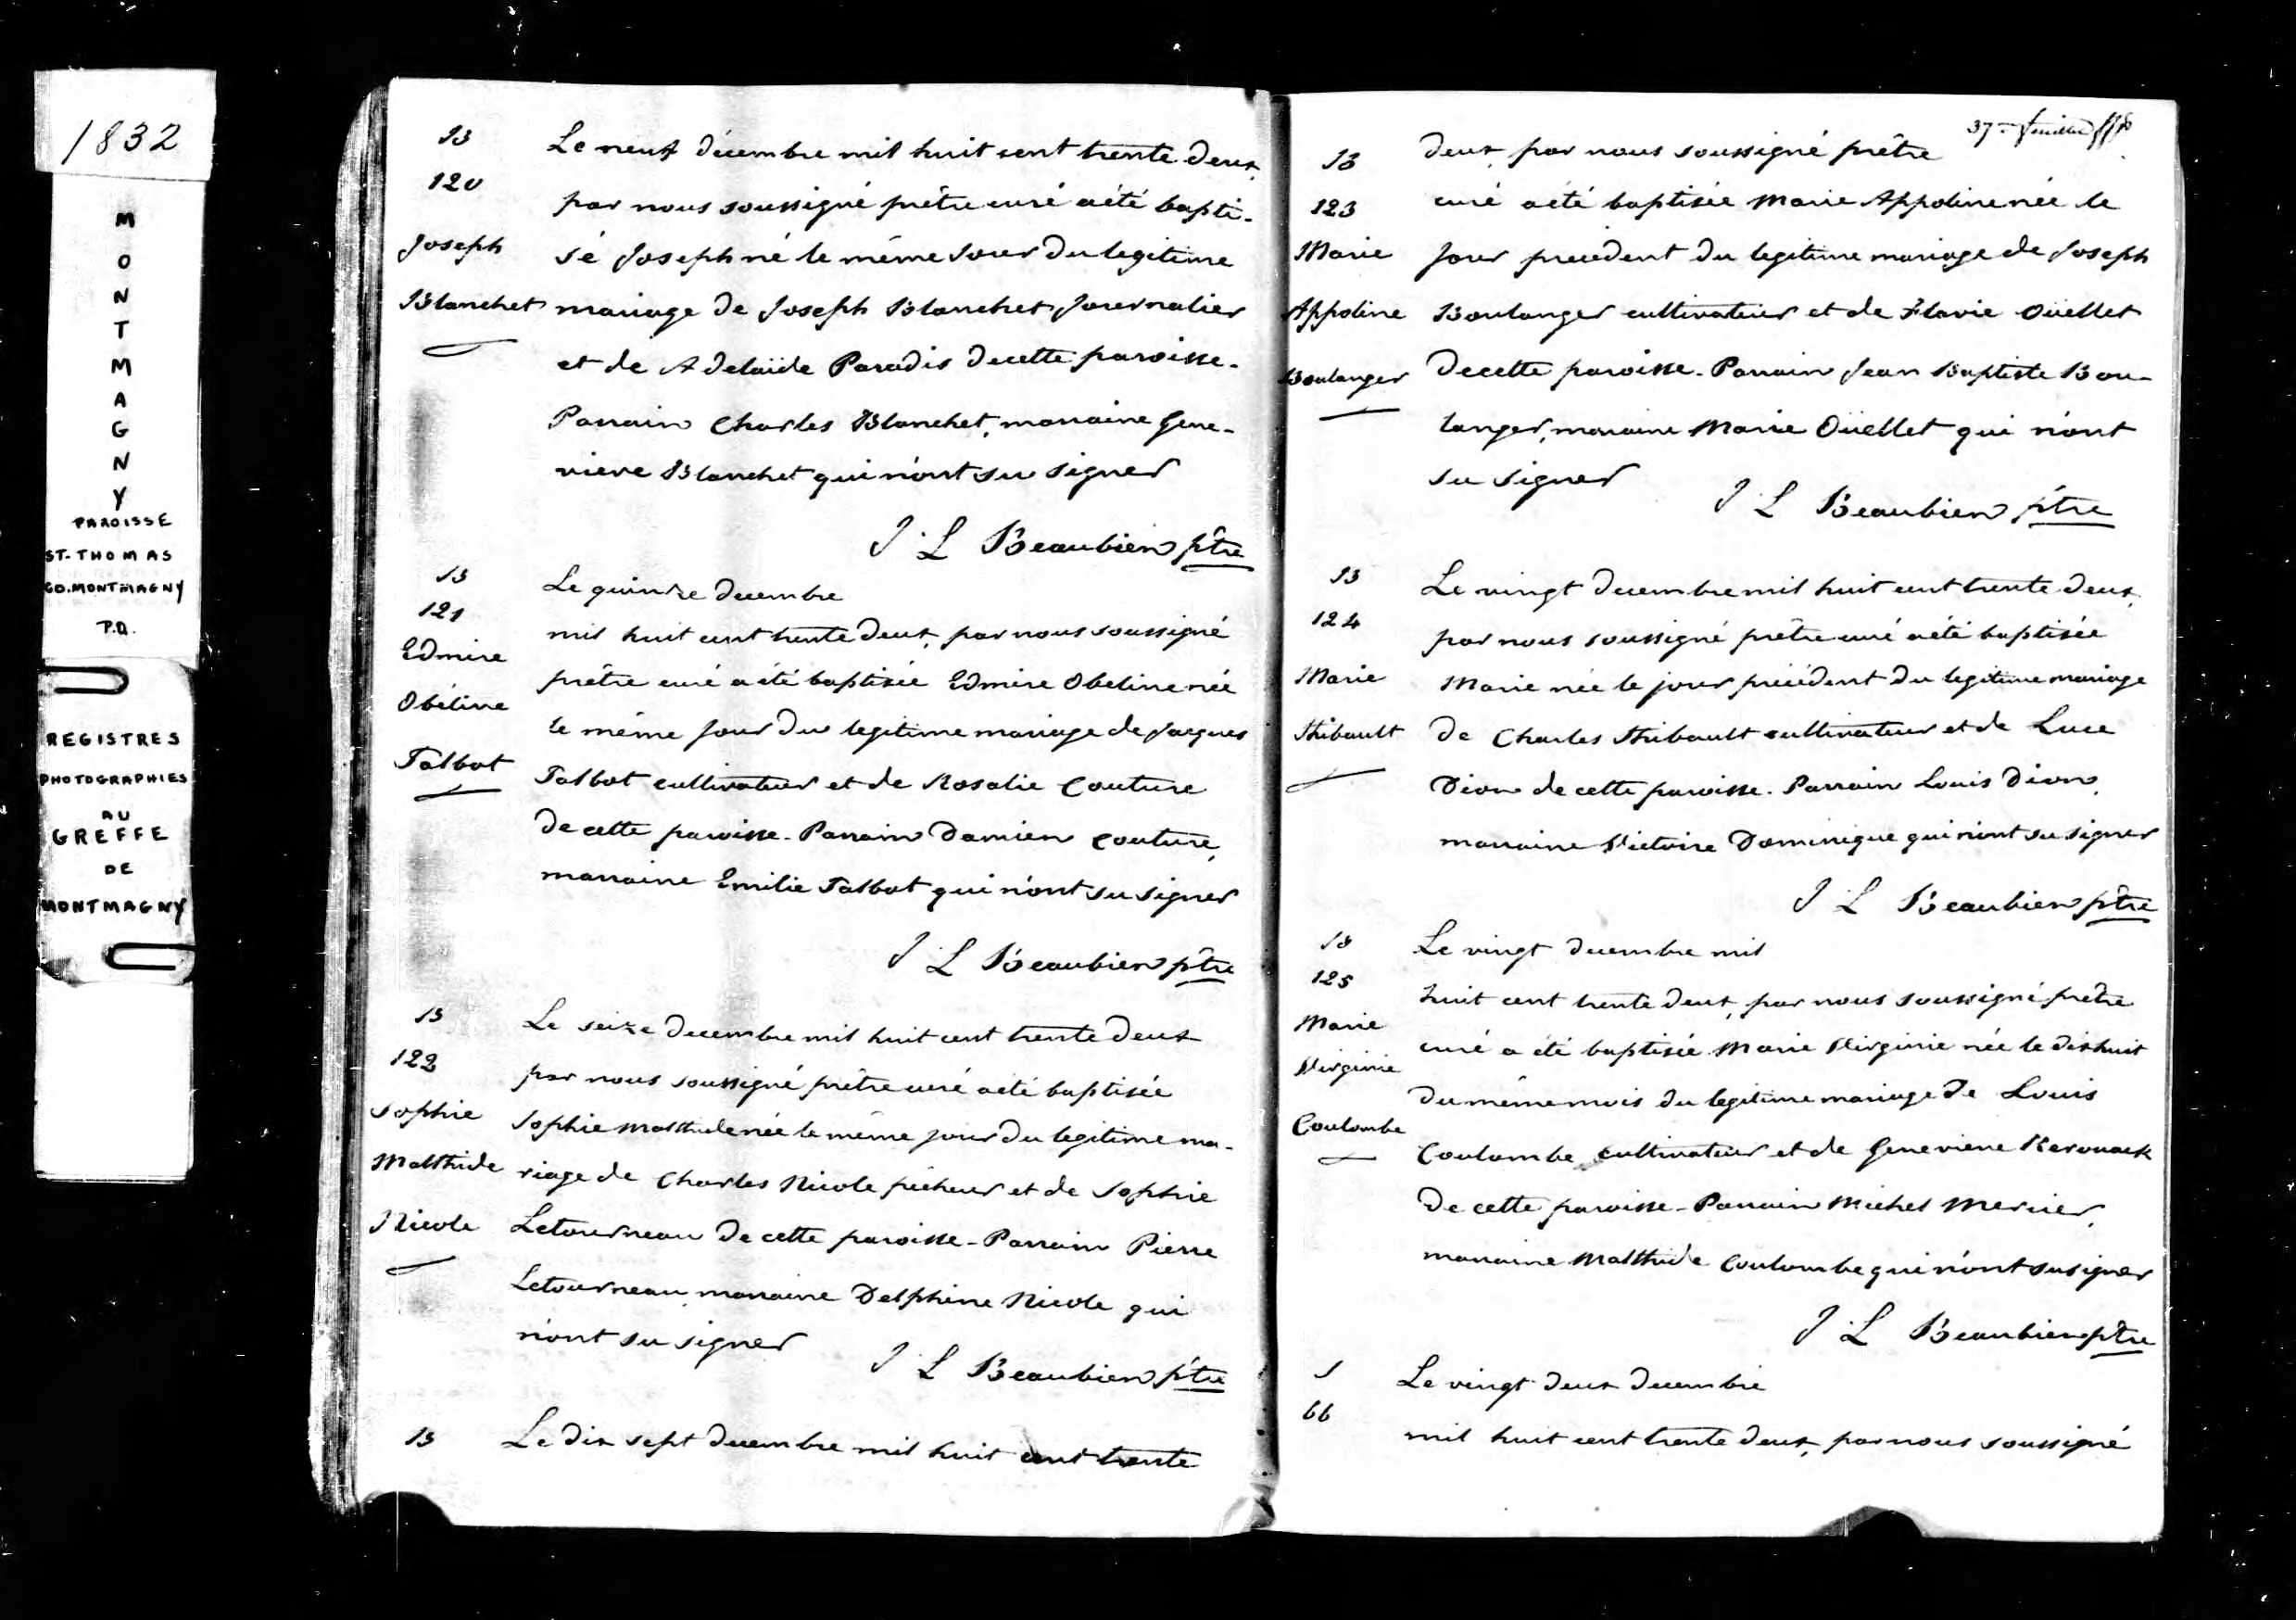 1832
M
O
N
T
M
A
G
N
Y
PAROISSE
ST. THOMAS
CO. MONTMAGNY
P.Q.
REGISTRES
PHOTOGRAPHIES
AU
GREFFE
DE
MONTMAGNY
B
120
Joseph
Blanchet
Le neuf décembre mil huit cent trente deux,
par nous soussigné prêtre curé a été bapti-
sé Joseph né le même jour du legitime
mariage de Joseph Blanchet journalier
et de Adelaïde Paradis de cette paroisse.
Parrain Charles Blanchet, marraine Gene-
vieve Blanchet qui n'ont su signer
J. L Beaubien ptre
B
121
Edmire
Obéline
Talbot
Le quinze decembre
mil huit cent trente deux, par nous soussigné
prêtre curé a été baptisée Edmire Obeline née
le même jour du legitime mariage de Jacques
Talbot cultivateur et de Rosalie Couture
de cette paroisse. Parrain Damien Couture,
marraine Emilie Talbot qui n'ont su signer
J. L Beaubien ptre
B
122
Sophie
Malthide
Nicole
Le seize decembre mil huit cent trente deux
par nous soussigné prêtre curé a été baptisée
Sophie Malthide née le même jour du legitime ma-
riage de Charles Nicole pêcheur et de Sophie
Letourneau de cette paroisse - Parrain Pierre
Letourneau, marraine Delphine Nicole qui
n'ont su signer
J L Beaubien ptre
B
Le dix sept decembre mil huit cent trente
37me feuillet
B
123
Marie
Appoline
Boulanger
deux, par nous soussigné prêtre
curé a été baptisée Marie Appoline née le
jour precedent du legitime mariage de Joseph
Boulanger cultivateur et de Flavie Oüellet
de cette paroisse. Parrain Jean Baptiste Bou-
langer, maraine Marie Oüellet qui n'ont
su signer
J L Beaubien ptre
B
124
Marie
Thibault
Le vingt decembre mil huit cent trente deux,
par nous soussigné prêtre curé a été baptisée
Marie née le jour précédent du legitime mariage
de Charles Thibault cultivateur et de Luce
Dion de cette paroisse. Parrain Louis Dion,
marraine Victoire Dominique qui n'ont su signer
J L Beaubien ptre
B
125
Marie
Virginie
Coulombe
Le vingt decembre mil
huit cent trente deux, par nous soussigné prêtre
curé a été baptisée Marie Virginie née le dix huit
du même mois du legitime mariage de Louis
Coulombe cultivateur et de Genevieve Kerouack
de cette paroisse - Parrain Michel Mercier,
marraine Malthide Coulombe qui n'ont su signer
J. L Beaubien ptre
S
66
Le vingt deux decembre
mil huit cent trente deux, par nous soussigné